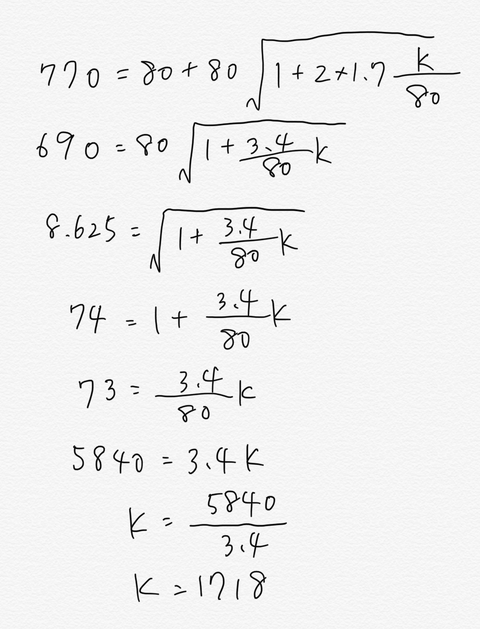 770 = 80 + 80 √(1 + 2 * 1.7 k/80)
690 = 80 √(1 + 3.4/80 k)
8.625 = √(1 + 3.4/80 k)
74 = 1 + 3.4/80 k
73 = 3.4/80 k
5840 = 3.4 k
k = 5840/3.4
k = 1718